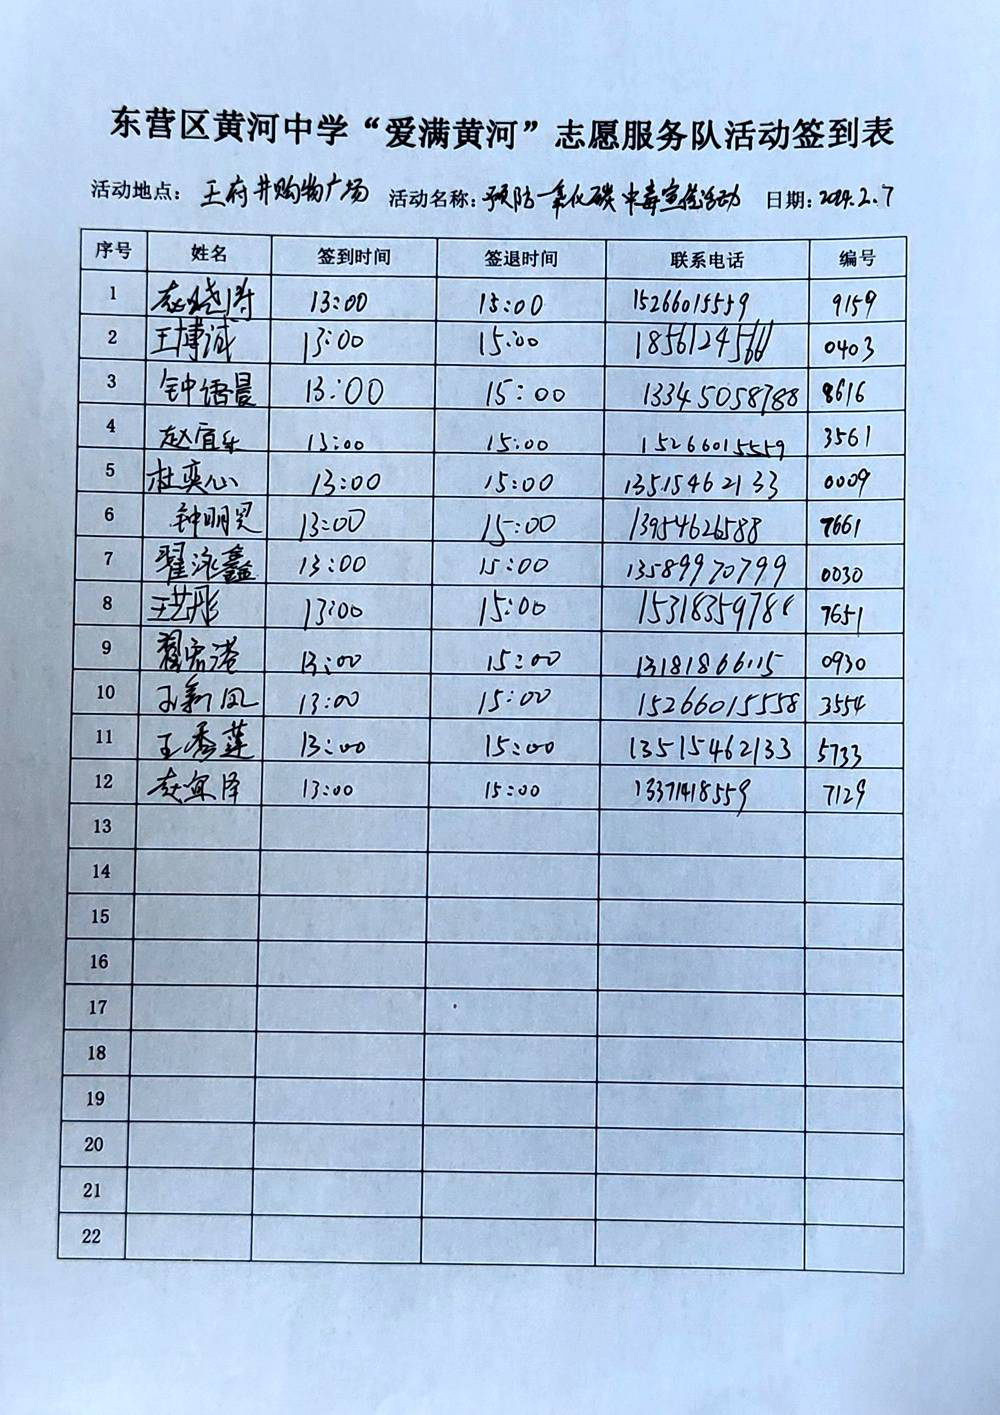 东营区黄河中学“爱满黄河”志愿服务队活动签到表
活动地点：王府井购物广场 活动名称：预防一氧化碳中毒宣传活动 日期：2024.2.7
序号 姓名 签到时间 签退时间 联系电话 编号
1 赵晓涛 13:00 15:00 15266015559 9159
2 王博诚 13:00 15:00 18561245666 0403
3 钟语晨 13:00 15:00 13345058788 8616
4 赵宜乐 13:00 15:00 15266015559 3561
5 杜奕心 13:00 15:00 13515462133 0009
6 钟明 13:00 15:00 13954626588 7661
7 翟泳鑫 13:00 15:00 13589970799 0030
8 王艺彤 13:00 15:00 15318359786 7651
9 翟 港 13:00 15:00 13181866115 0930
10 王新凤 13:00 15:00 15266015558 3554
11 王秀莲 13:00 15:00 13515462133 5733
12 赵宜泽 13:00 15:00 13371418559 7129
13
14
15
16
17
18
19
20
21
22